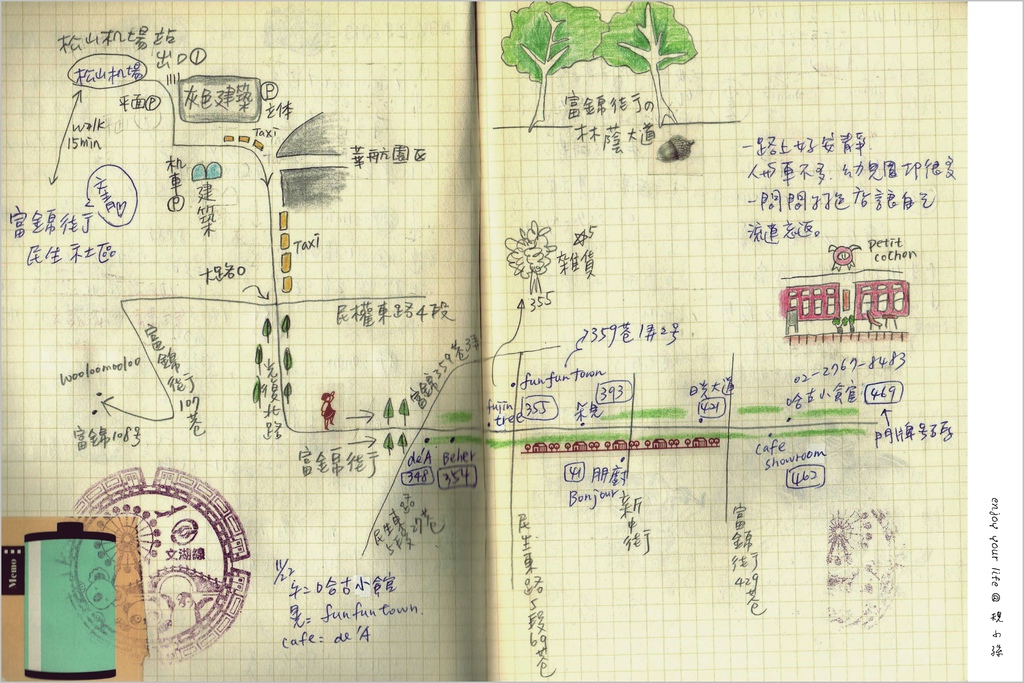 松山机場站
出口①
松山机場
平面Ⓟ
灰色建築
Ⓟ
立体
walk
15min
Taxi
華航園區
机車Ⓟ
建築
富錦街
民生社區
Taxi
大路口
民權東路4段
富錦街107巷
wooloomooloo
富錦108号
光復北路
富錦359巷
富錦街
de'A
348
Beher
354
民生東路5段27巷
文湖線
Memo
11/22
午=哈古小館
晃=funfuntown.
cafe=de'A
富錦街の
林蔭大道
一路上好安靜.
人与車不多. 幼兒園却很多
一間間特色店讓自己
流連忘返。
雜貨
355
petit
cochon
359巷1弄2号
funfuntown
fujin
tree
355
393
朵見
日光大道
421
02-2767-8483
哈古小館
469
門牌号碼
41
朋廚
Bonjour
新中街
cafe
showroom
462
民生東路5段69巷
富錦街429巷
enjoy your life @